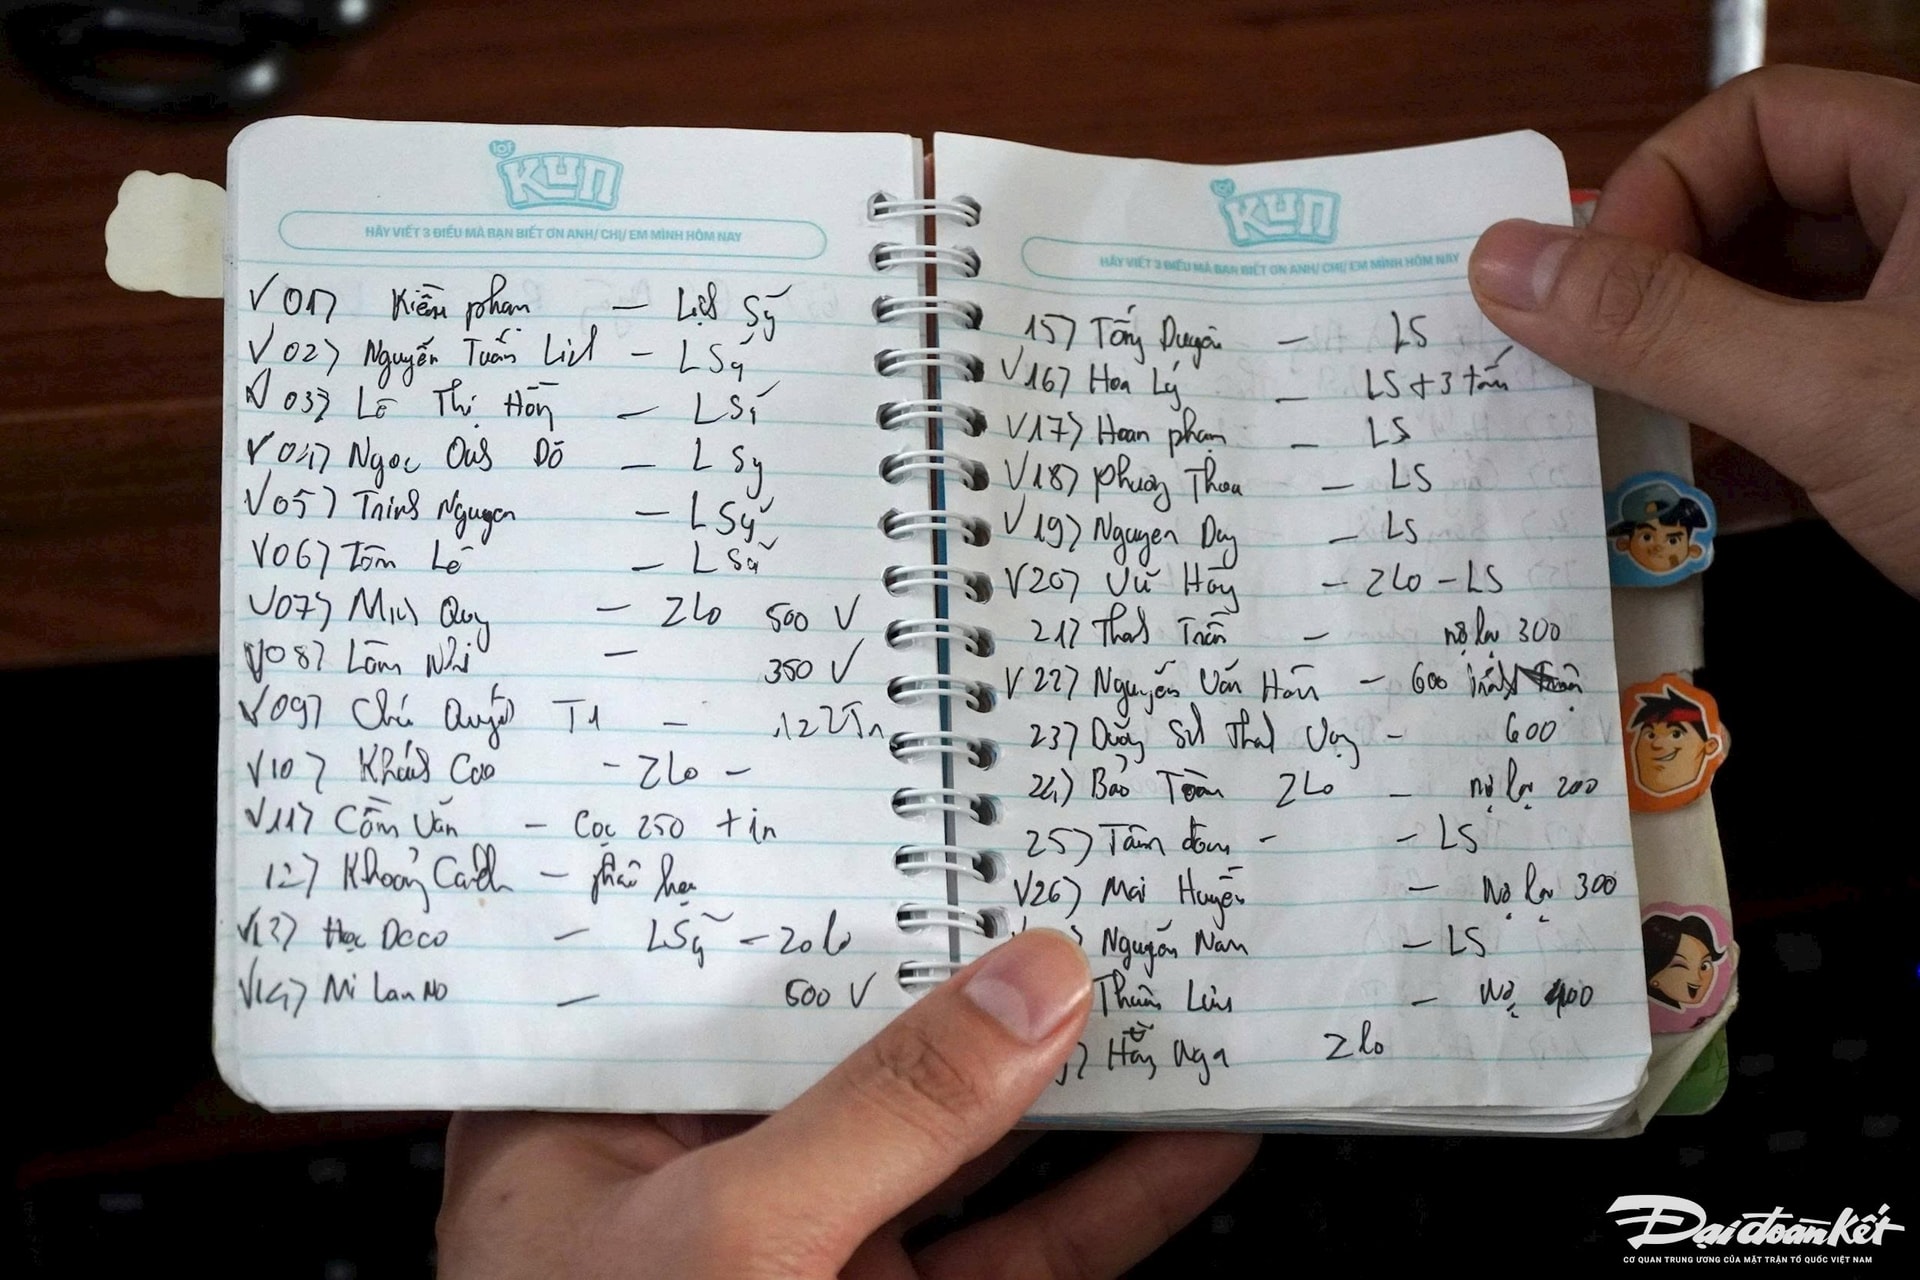 lof KUN
HÃY VIẾT 3 ĐIỀU MÀ BẠN BIẾT ƠN ANH/ CHỊ/ EM MÌNH HÔM NAY
V 01) Kiều phạm —
V 02) Nguyễn Tuấn — L Sỹ
V 03) Lê Thị Hồng — L Sĩ
V 04) Ngọc Đỗ — L Sỹ
V 05) Trinh Nguyen — L Sỹ
V 06) Tôm Lê — L Sỹ
V 07) Minh Quy — Zlo 500 V
V 08) Lâm Nhi — 350 V
V 09) Chú T1 —
V 10) Khánh Cao - Zlo -
V 11) Cẩm Vân - Cọc 250 + in
12) Khoảng —
V 13) Học Deco — L Sỹ - Zolo
V 14) Mi Lan — 500 V
lof KUN
HÃY VIẾT 3 ĐIỀU MÀ BẠN BIẾT ƠN ANH/ CHỊ/ EM MÌNH HÔM NAY
15) Tống Duyên — LS
V 16) Hoa Lý — LS + 3 tấm
V 17) Hoan phạm — LS
V 18) Phương Thoa — LS
V 19) Nguyen Duy — LS
V 20) Vũ Hồng - Zlo - LS
21) Thanh Trần — nợ lại 300
V 22) Nguyễn Văn Hân - 600
23) 600
24) Bảo Toàn Zlo - nợ lại 200
25) Tâm - - LS
V 26) Mai Huyền — nợ lại 300
Nguyễn Nam — LS
Thuần — nợ 400
Hằng Nga Zlo
Đại đoàn kết
CƠ QUAN TRUNG ƯƠNG CỦA MẶT TRẬN TỔ QUỐC VIỆT NAM